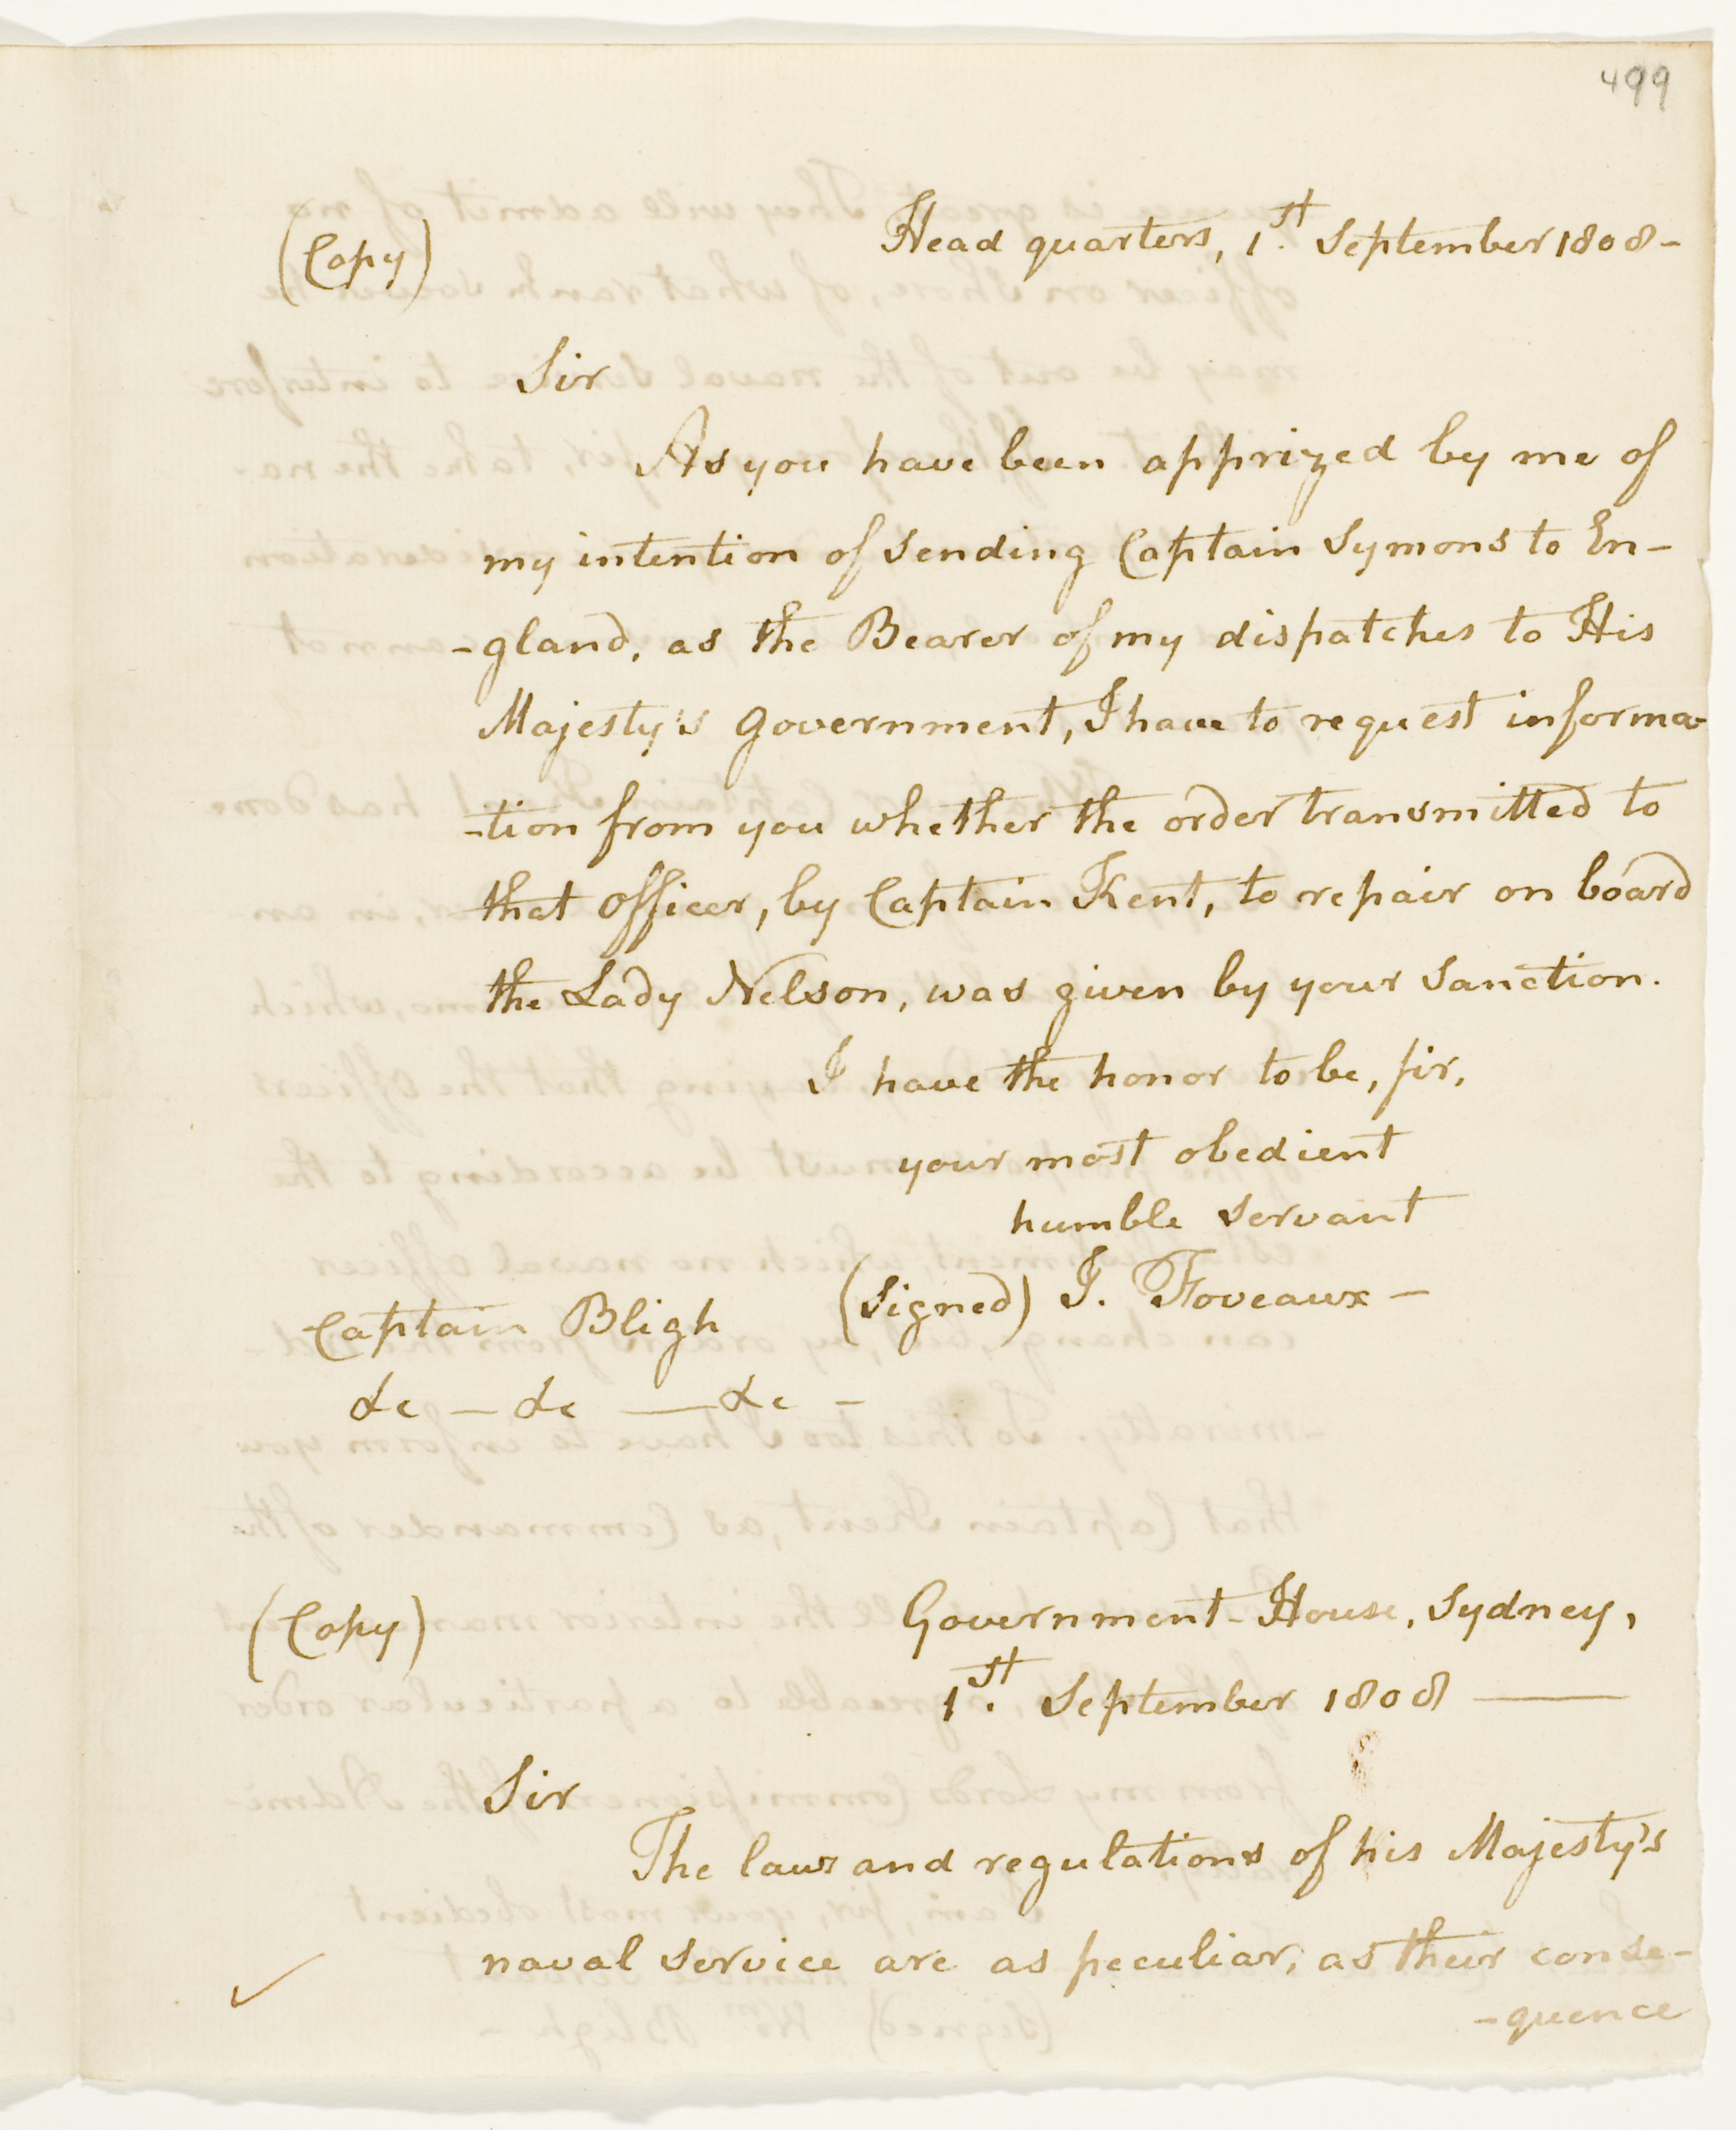 499
(Copy)
Head quarters, 1.st September 1808-
Sir
As you have been apprized by me of
my intention of sending Captain Symons to En-
-gland, as the Bearer of my dispatches to His
Majesty's Government, I have to request informa-
-tion from you whether the order transmitted to
that Officer, by Captain Kent, to repair on board
the Lady Nelson, was given by your sanction.
I have the honor to be, sir,
your most obedient
humble servant
(Signed) J. Foveaux -
Captain Bligh
&c - &c - &c -
(Copy)
Government-House, Sydney,
1.st September 1808 -
Sir
The laws and regulations of his Majesty's
naval service are as peculiar, as their conse-
-quence